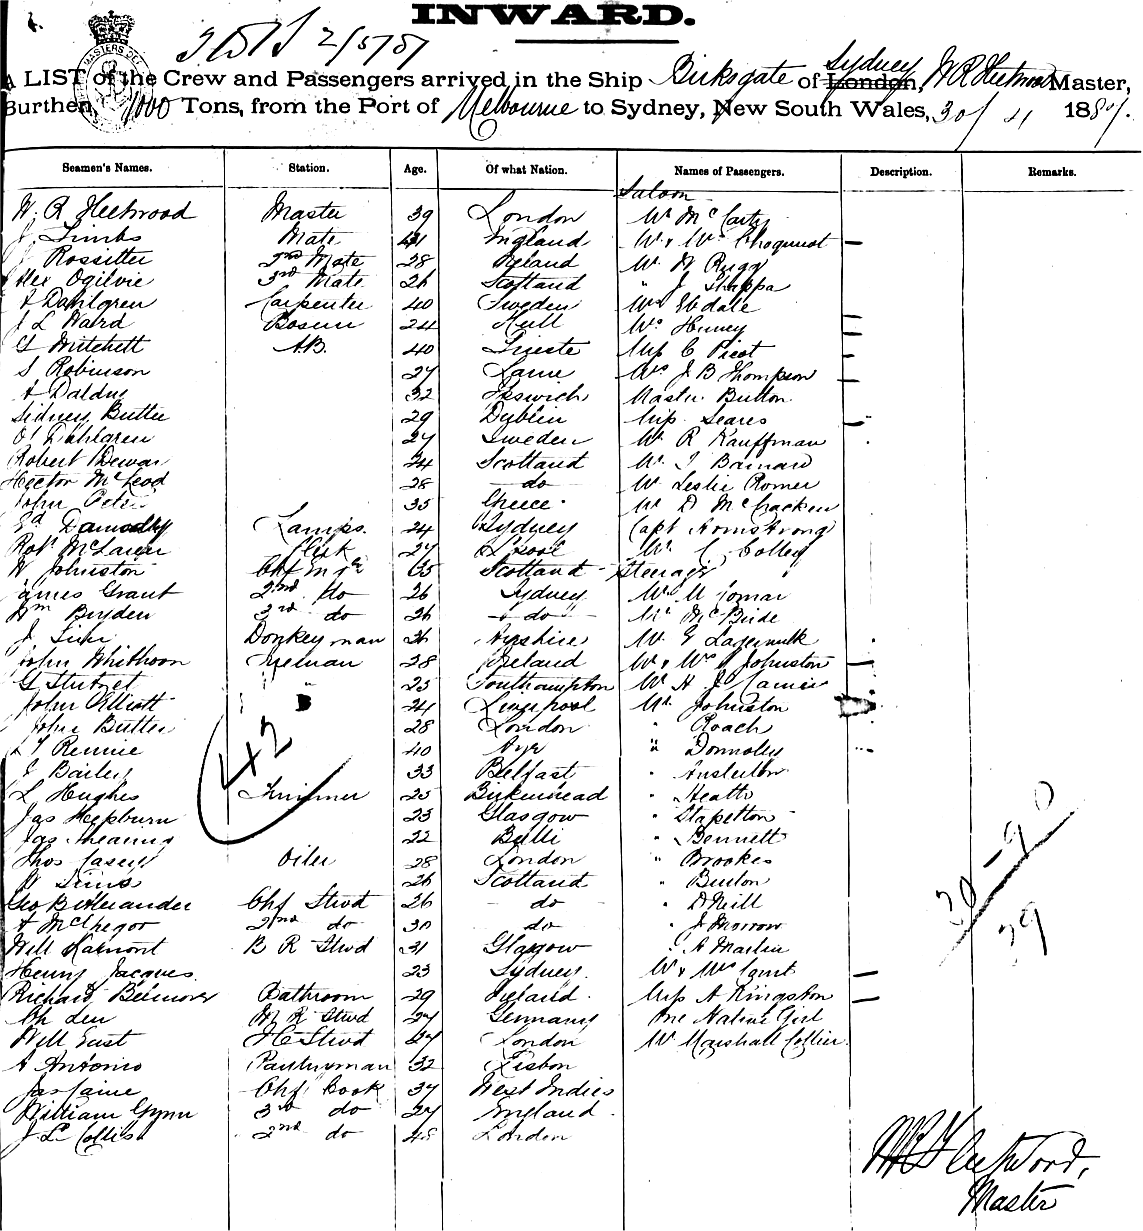 INWARD.
A LIST of the Crew and Passengers arrived in the Ship Birksgate of London, Sydney, W R Fleetwood Master,
Burthen 1000 Tons, from the Port of Melbourne to Sydney, New South Wales, 30/4 1887.
Seamen's Names. Station. Age. Of what Nation. Names of Passengers. Description. Remarks.
Saloon
W. R Fleetwood Master 39 London Mr McCarty
J. Timbs Mate 41 England Mr & Mrs Choquest
J Rossitter 2nd Mate 28 Ireland Mr W Rugg
Alex Ogilvie 3rd Mate 26 Scotland " J
A Dahlgren Carpenter 40 Sweden Mrs Esdale
J L Ward Bosun 24 Hull Mrs
G Mitchell A.B. 40 Trieste Miss C Picot
S Robinson 27 Larne Mrs J B Thompson
A 32 Ipswich Master Button
Sidney Butler 29 Dublin Miss Seares
Dahlgren 27 Sweden Mr R Kauffman
Robert Dewar 24 Scotland Mr T Barnard
Hector McLeod 28 do Mr Leslie Romer
John Peter 35 Greece Mr D McCracken
Ed Lamps. 24 Sydney Capt Armstrong
Robt McLaren Clerk 27 L'pool Mr C Colley
W Johnston Chf Engr 35 Scotland Steerage
James Grant 2nd do 26 Sydney Mr
Wm Bryden 3rd do 26 do Mr McBride
J Donkeyman 26 Ayrshire Mr G
John Whithorn Fireman 28 Ireland Mr & Mrs Johnston
G " 25 Southampton Mr H J
John Elliott " 24 Liverpool Mr Johnston
John Butler 28 London " Roach
Rennie 40 Ayr " Donnolly
J Bailey 33 Belfast "
L Hughes Trimmer 25 Birkenhead " Heath
Jas Hepburn 23 Glasgow " Stapelton
Jas 22 Bulli " Bennett
Thos Casey Oiler 28 London " Brookes
26 Scotland " Burton
Geo B Allexander Chf Stwd 26 do " O'Neill
A McGregor 2nd do 30 do " J Morrow
Will B R Stwd 31 Glasgow " A Martin
Henry Jacques 23 Sydney Mr & Mrs
Richard Bathroom 29 Ireland. Miss A Kingston
M R Stwd 27 Germany One Native Girl
Will East Stwd 27 London Mr Marshall Collier
A Antonio Pantryman 32 Lisbon
Jas Caine Chf Cook 37 West Indies
William Gynn 3rd do 27 England
J L Collis 2nd do 48 London
42
30-90
39
W R Fleetwood,
Master